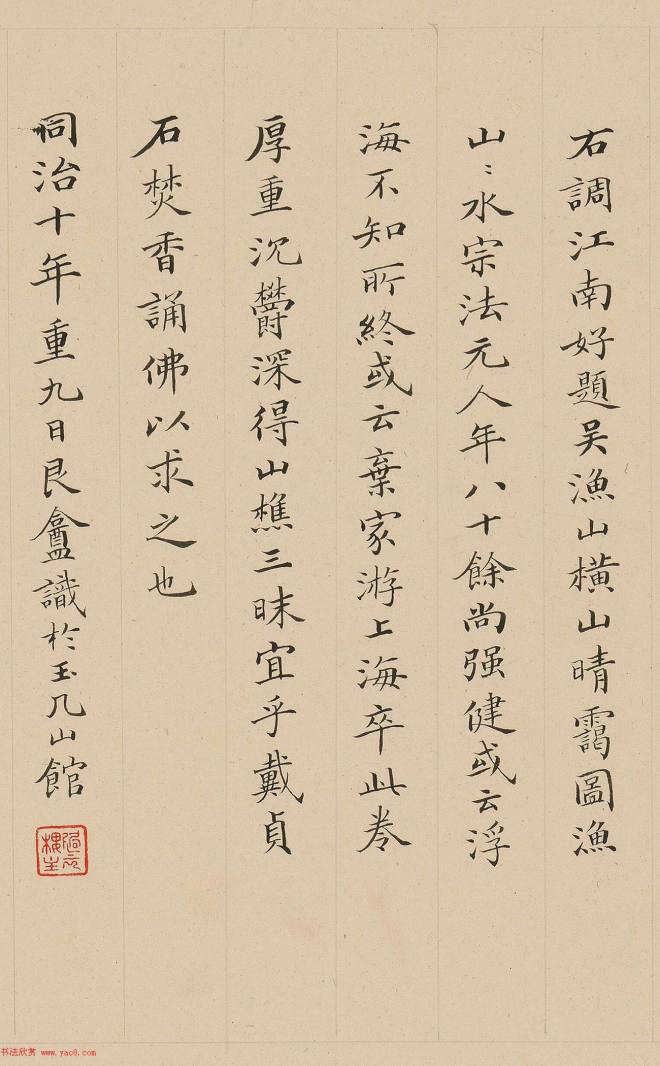 右調江南好題吴漁山橫山晴靄圖漁
山〻水宗法元人年八十餘尚强健或云浮
海不知所終或云棄家游上海卒此卷
厚重沉鬱深得山樵三昧宜乎戴貞
石焚香誦佛以求之也
同治十年重九日艮盦識於玉几山館
过云樓主
书法欣赏 www.yac8.com